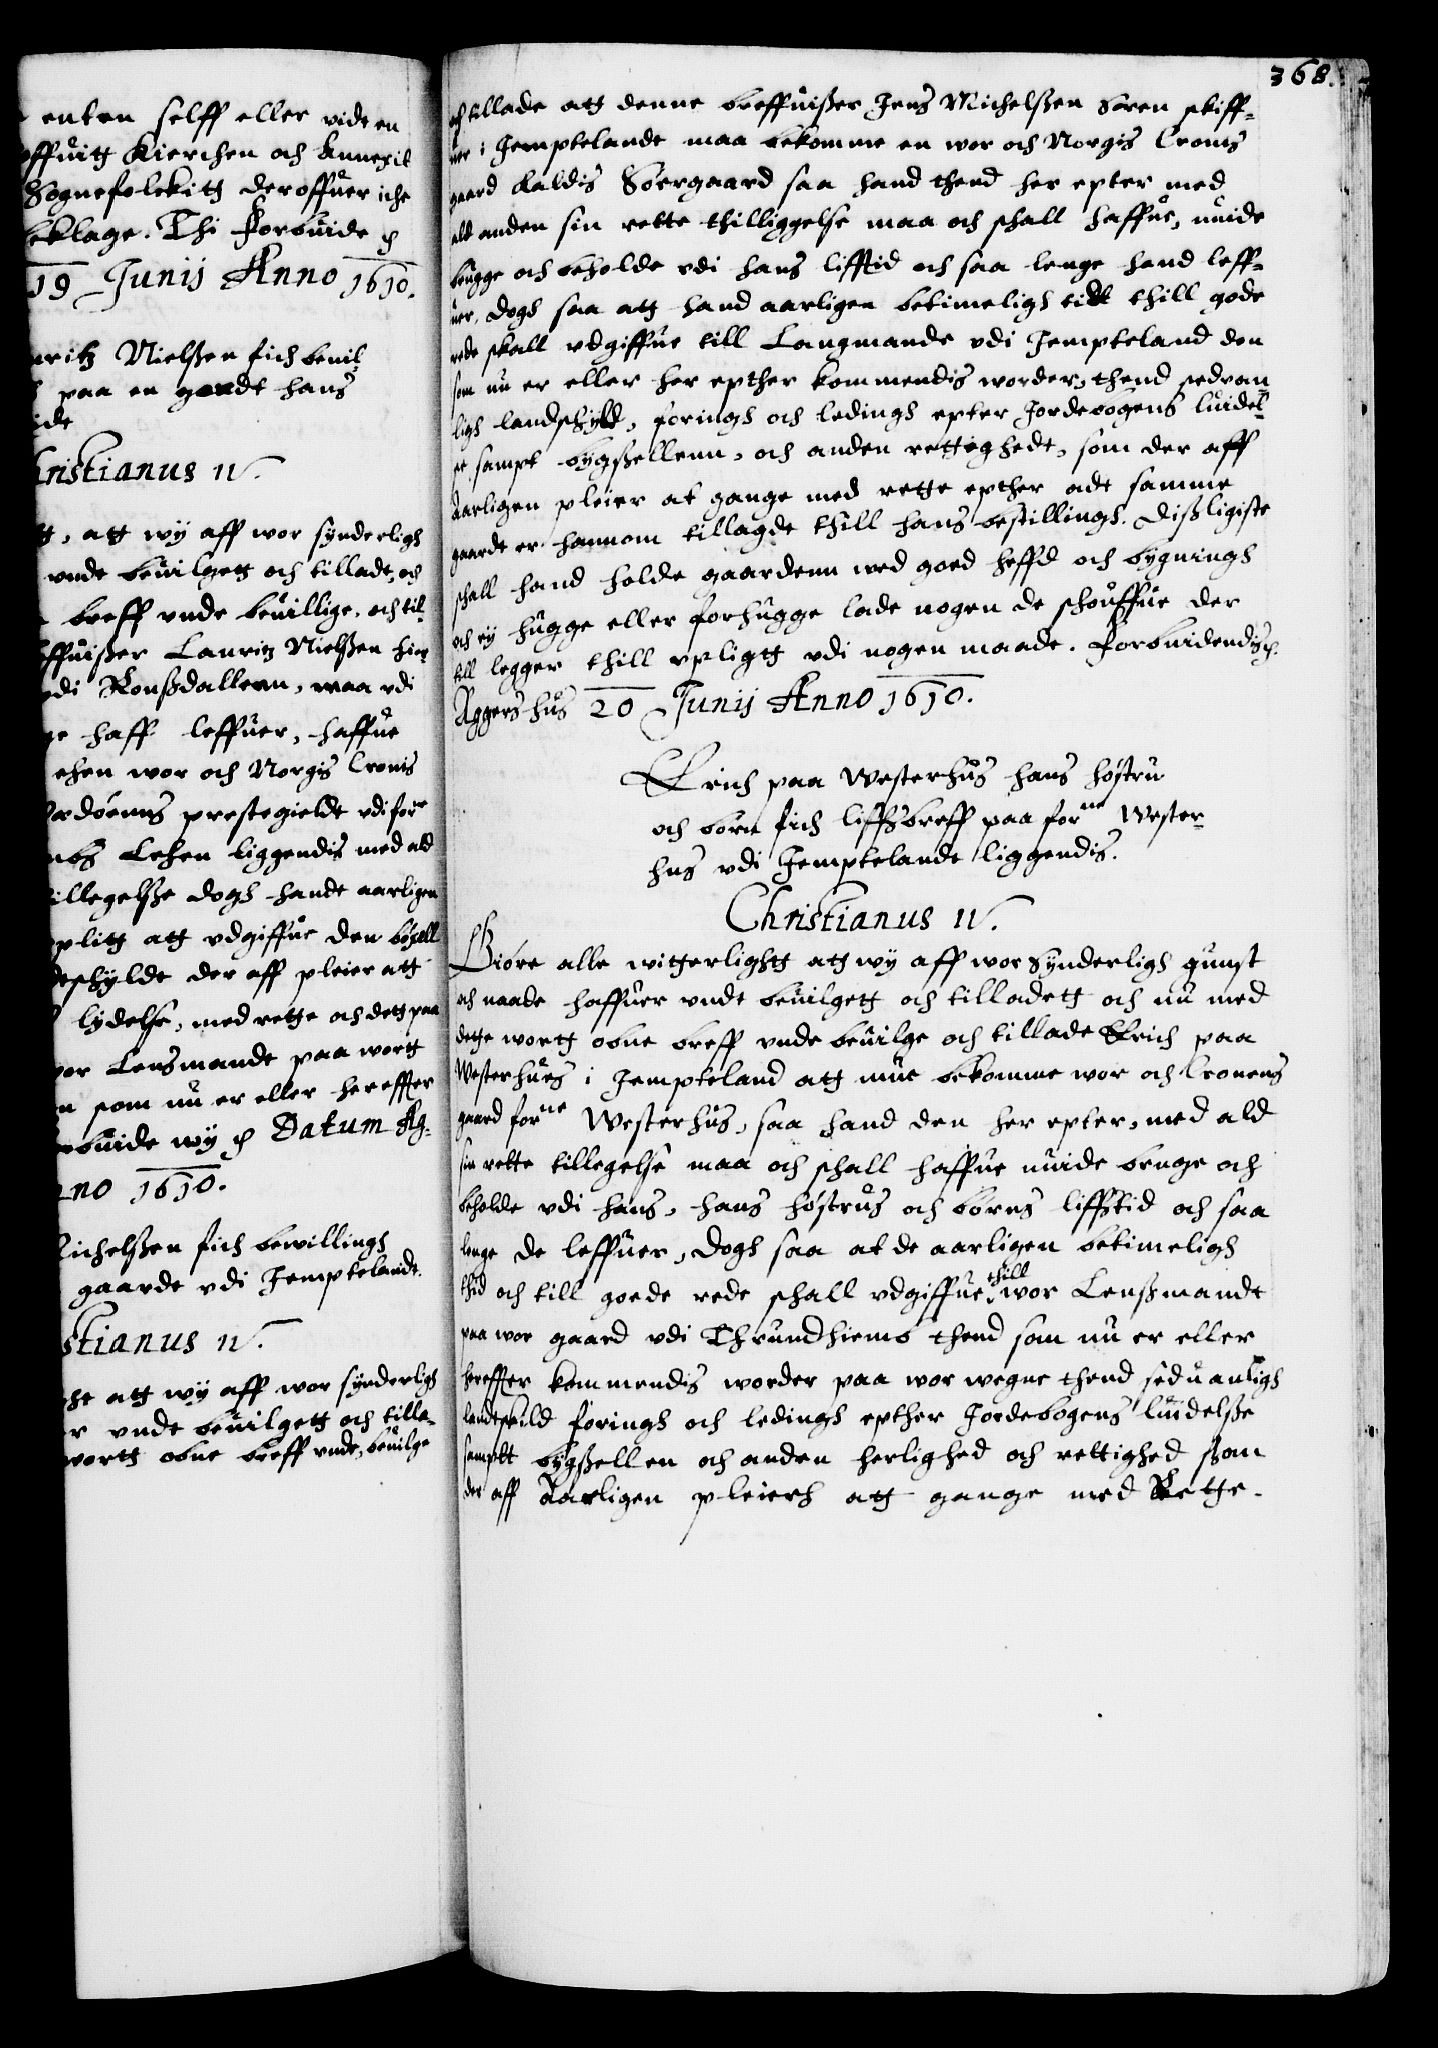 enten selff eller vide en
offuitt Kierchen och Annexit
Sognefolckitt deroffuer iche
beklage. Thi forbiude
19 Junij Anno 1610.
Nielssen fich bevil-
paa en gaardt hans
Christianus IV.
att wy aff wor synderligh
vnde beuilgett och tilladt, och
breff vnde beuillige, och til-
Lauritz Nielssen
vdi Romssdallenn, maa vdi
haff leffuer, haffue
wor och Norgis Cronis
prestegieldt vdi forne
Lehen liggendis med ald
tillegelsse dogh hande aarligen
att vdgiffue den böxell
der aff pleier att
lydelse, med rette och dett paa
vor Lensmande paa wortt
som nu er eller herepter
forbiude wy Datum Ag-
Anno 1610.
Michelssen fich bewillingh
gaarde vdi Jemptelandt.
Christianus IV.
att wy aff wor synderligh
vnde beuilgett och tilla-
wortt obne breff vnde, beuilge
368.
och tillade att denne breffuisser Jens Michelssen Soren skiff-
uer i Jemptelande maa bekomme en wor och Norgis Cronis
gaard kaldis Söergaard saa hand thend her epter med
ald anden sin rette thilliggelse maa och schall haffue, nuide
brugge och beholde vdi hans lifftid och saa lenge hand leff-
uer, dogh saa att hand aarligen betimeligh tidt thill gode
rede skall vdgiffue till Laugmande vdi Jempteland den
som nu er eller her epther kommendis worder, thend sedvan-
ligh landschyld, foringh och ledingh epter Jordebogens luidel-
se sampt bygssellenn, och anden rettighedt, som der aff
aarligen pleier at gange med rette epther adt samme
gaardt er hannom tillagde thill hans bestillingh. Dissligiste
schall hand holde gaardenn wed goed heffd och bygningh
och ey hugge eller forhugge lade nogen de schouffue der
till legger thill vpligtt vdi nogen maade. Forbiudendis
Aggershus 20 Junij Anno 1610.
Erich paa Westerhus hans höstru
och börn fich liffsbreff paa forne Wester-
hus vdi Jemptelandt liggendis.
Christianus IV.
Giöre alle witterlightt att wy aff wor synderligh gunst
och naade haffuer vndt beuilgett och tilladett och nu med
dette wortt obne breff vnde beuilge och tillade Erich paa
Westerhues i Jempteland att mue bekomme wor och Cronens
gaard forne Westerhus, saa hand den her epter, med ald
sin rette tillegelse maa och schall haffue nuide bruge och
beholde vdi hans, hans höstrus och börns liffstid och saa
lenge de leffuer, dogh saa at de aarligen betimeligh
thid och till goede rede schall vdgiffue thill wor Lenssmandt
paa wor gaard vdi Thrundhiemb thend som nu er eller
hereffter kommendis worder paa wor wegne thend seduanligh
landtskild föringh och ledingh epther Jordebogens luidelsse
samptt bygssellen och anden herlighed och rettighed ssom
der aff aarligen pleierh att gange med Rette.